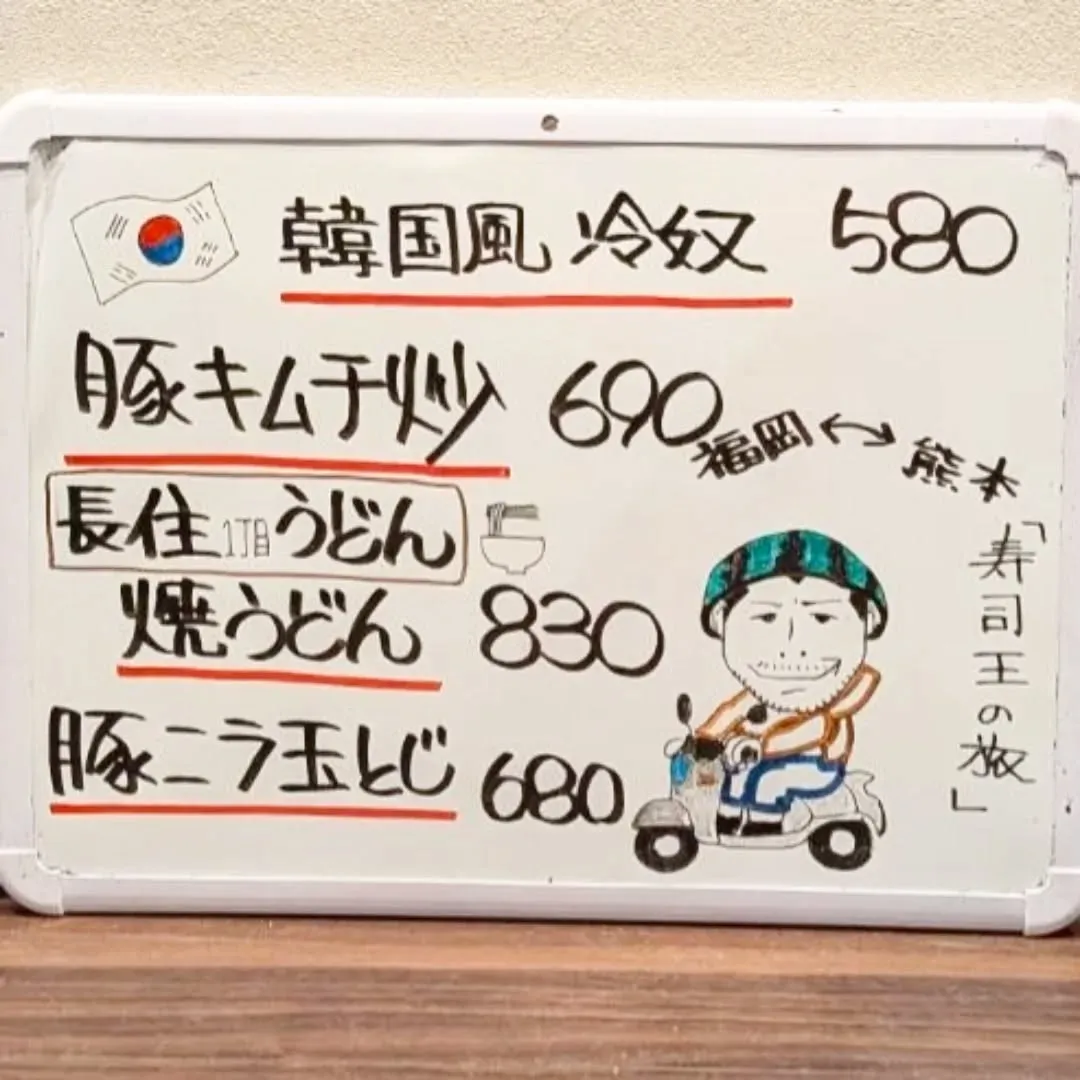 韓国風 冷奴 580
豚キムチ炒 690
福岡↔熊本
長住1丁目うどん
焼うどん 830
豚ニラ玉とじ 680
「寿司王の旅」